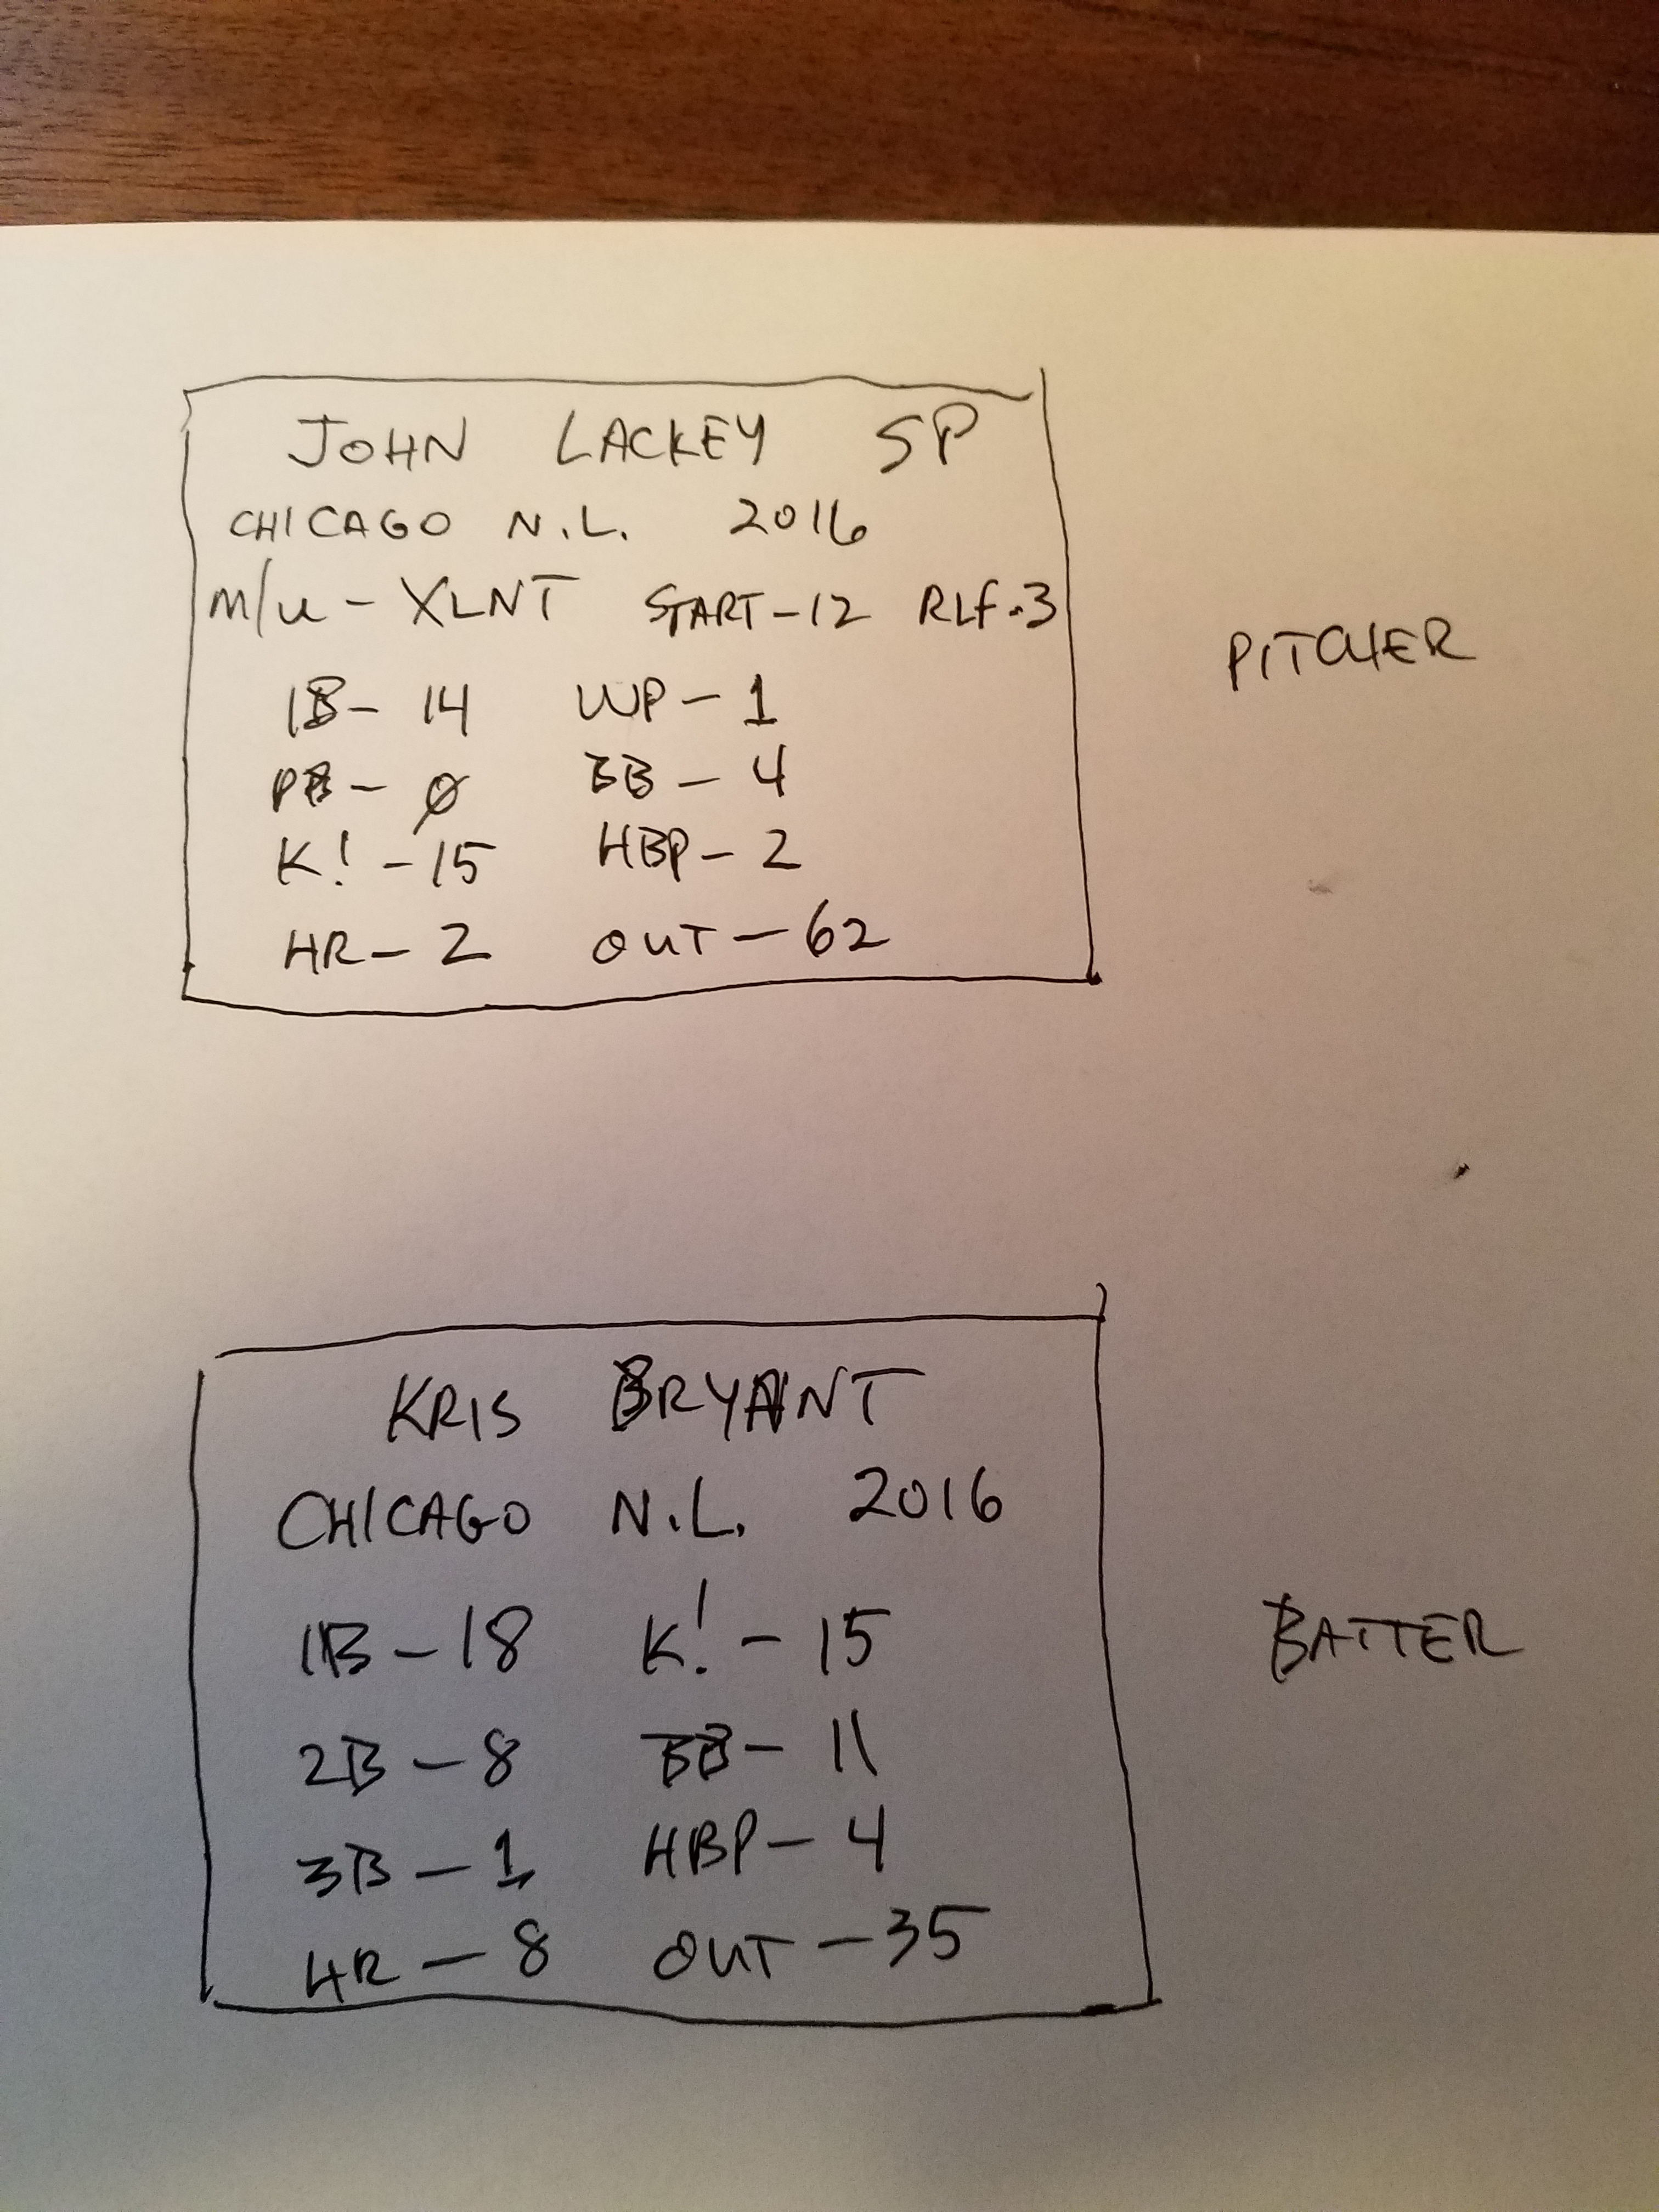 JOHN LACKEY SP
CHICAGO N.L. 2016
M/U - XLNT START-12 RLF-3
1B- 14 WP- 1
PB- 0 BB- 4
K! -15 HBP- 2
HR- 2 OUT-62
PITCHER
KRIS BRYANT
CHICAGO N.L. 2016
1B-18 K!-15
2B-8 BB-11
3B-1 HBP-4
HR-8 OUT-35
BATTER